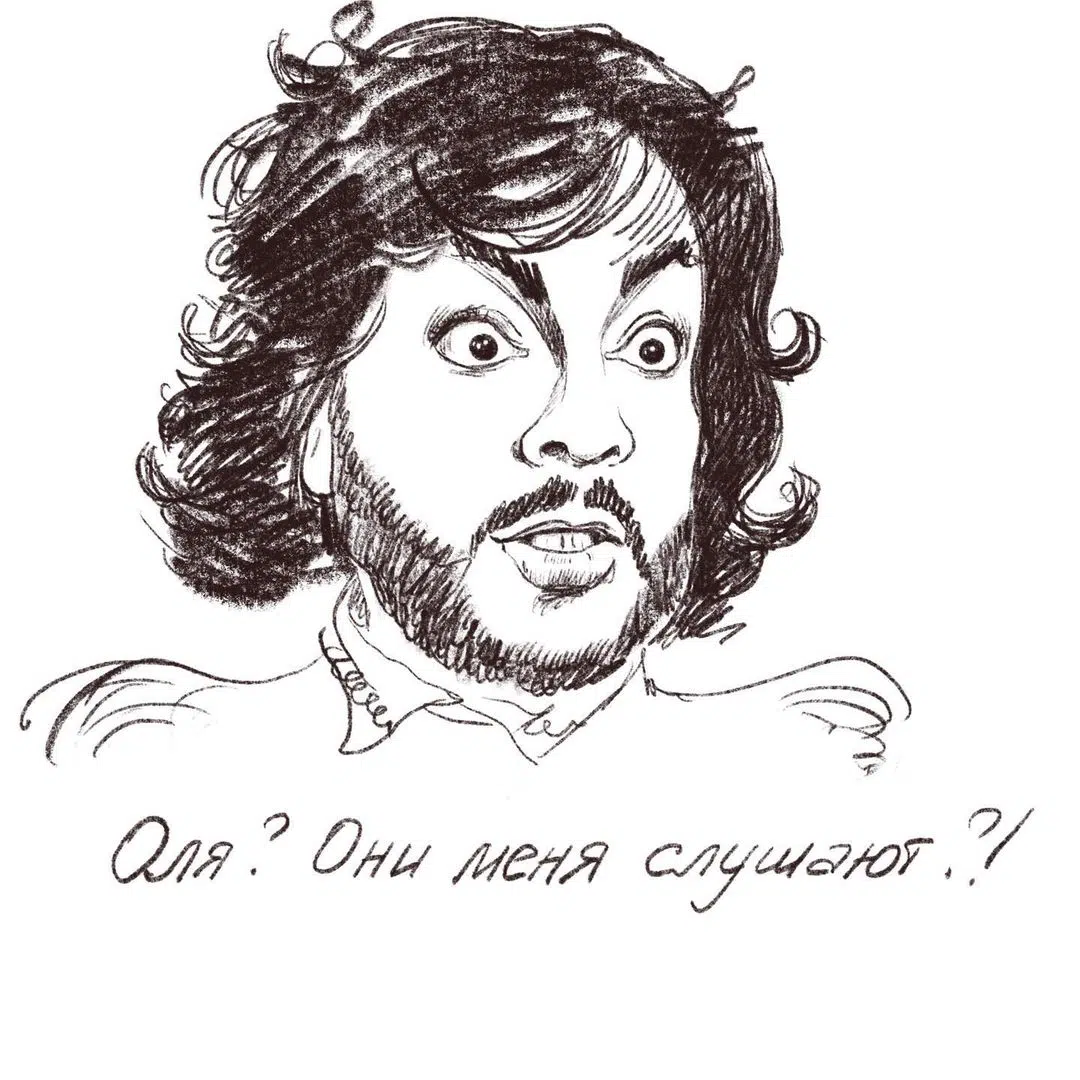 Оля? Они меня слушают.?!